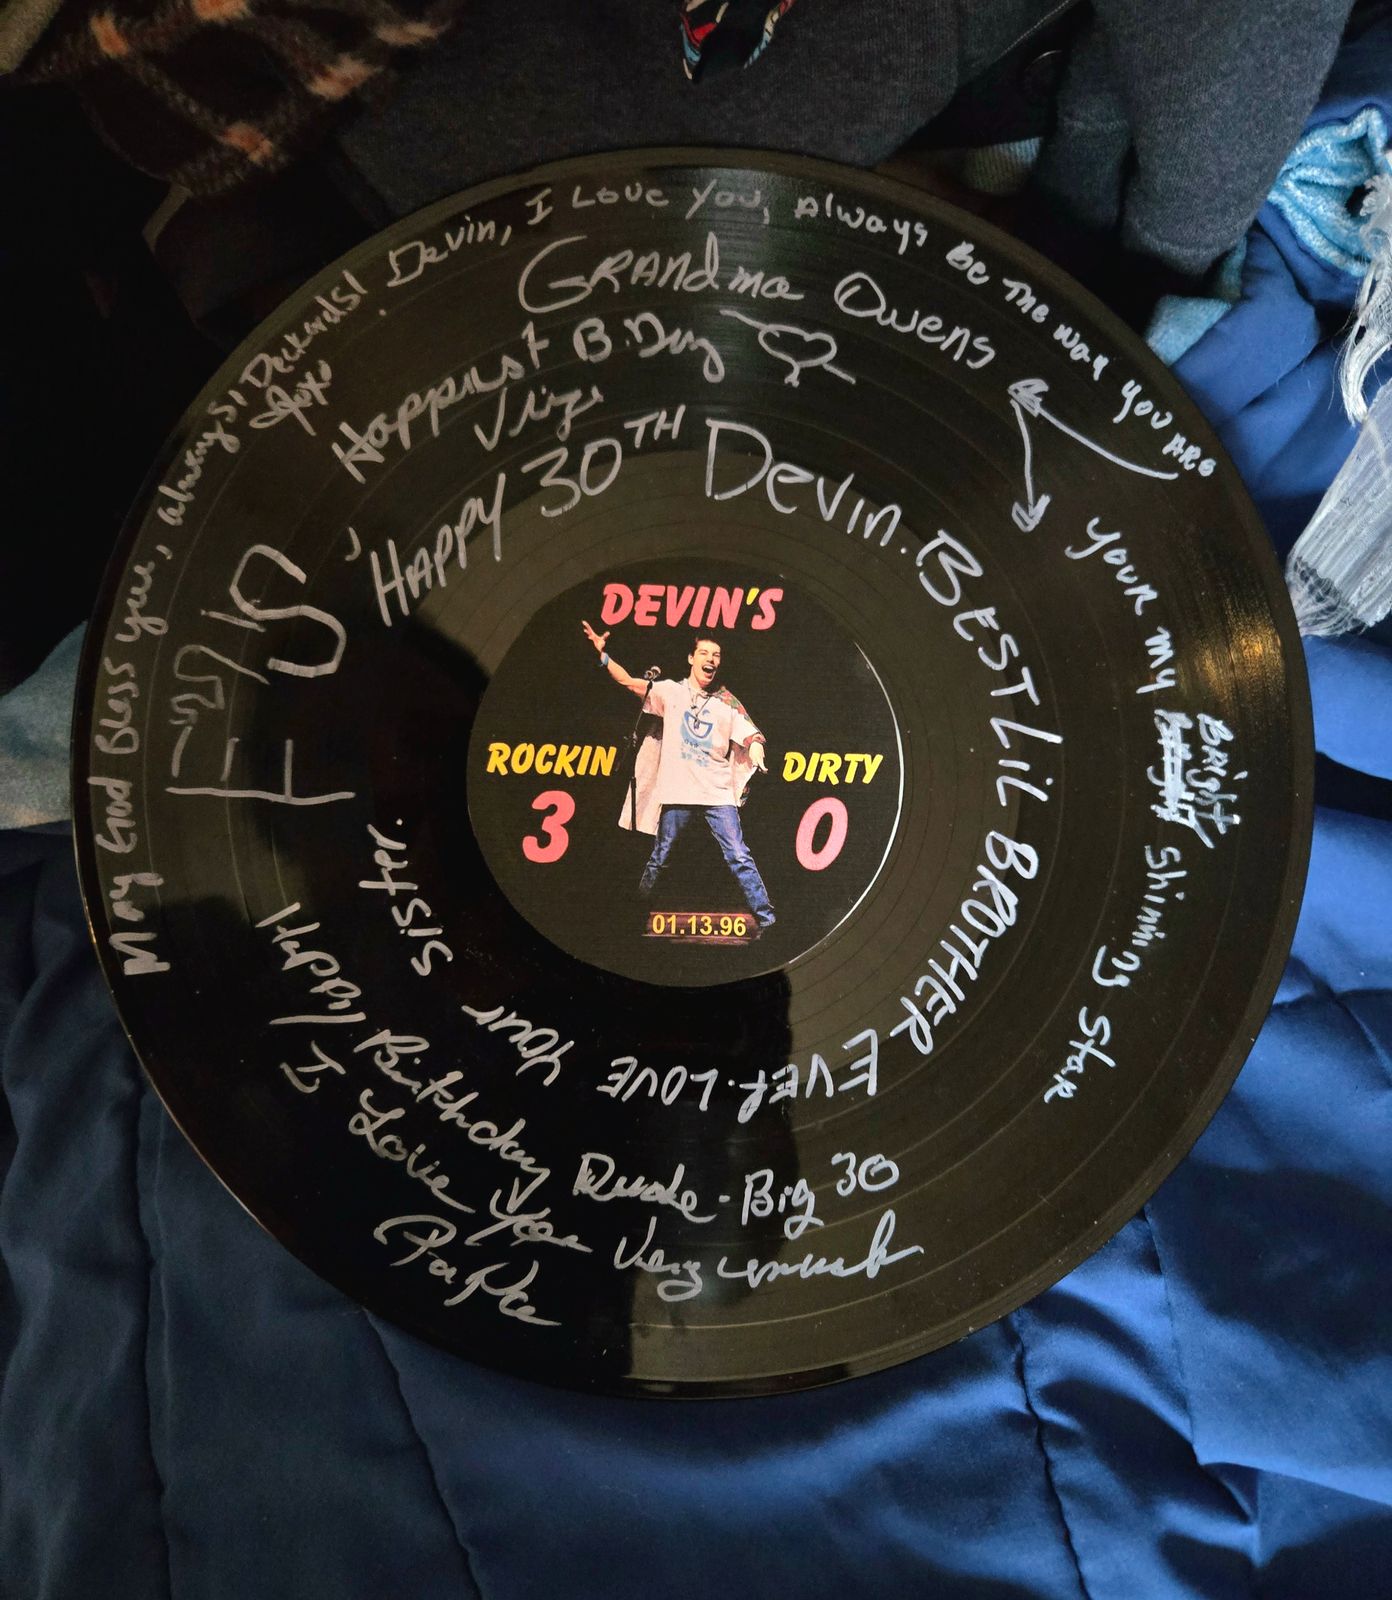 DEVIN'S
ROCKIN
DIRTY
3 0
01.13.96
Devin, I Love you, Always Be The way you Are
Grandma Owens
Your my Bright Shining Star
Happiest B.Day
HAPPY 30TH DEVIN. BEST LIL BROTHER EVER. LOVE your sister.
May God Bless you, always! Deckards!
Happy Birthday Dude - Big 30
I Love You Very much
PaPa